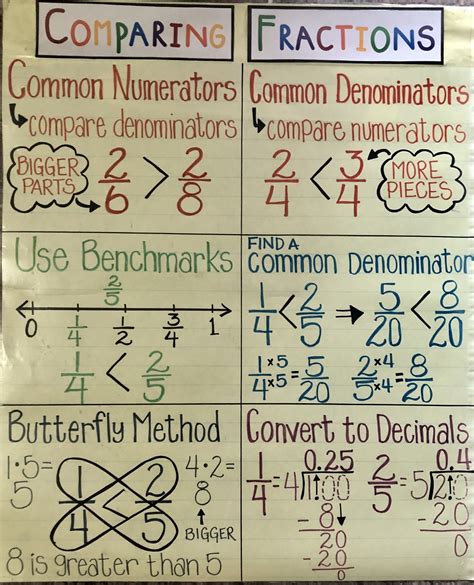 COMPARING FRACTIONS
Common Numerators
compare denominators
BIGGER PARTS
2/6 > 2/8
Common Denominators
compare numerators
2/4 < 3/4
MORE PIECES
Use Benchmarks
2/5
0 1/4 1/2 3/4 1
1/4 < 2/5
FIND A
Common Denominator
1/4 < 2/5 → 5/20 < 8/20
1×5/4×5 = 5/20 2×4/5×4 = 8/20
Butterfly Method
1·5=
5
1/4 < 2/5
4·2=
8
BIGGER
8 is greater than 5
Convert to Decimals
0.25
1/4 = 4 100
-8
20
-20
0
0.4
2/5 = 5 2.0
-20
0